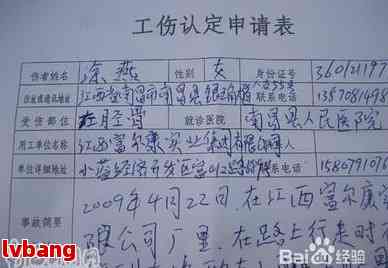 工伤认定申请表
伤者姓名 涂燕 性别 女 身份证号 360121197
住址或通讯地址 江西 南昌市南昌县 联系电话 1357081498
受伤部位 胫骨 就诊医院 南昌县人民医院
用工单位名称 江西富尔康实业 有限公司
单位详细地址 小蓝经济开发区富山 路 联系电话 1580791016
事故简要 2009年4月22日,在江西富尔康实
限公司厂里,在路上行走时
lvbang
Bai 百度经验